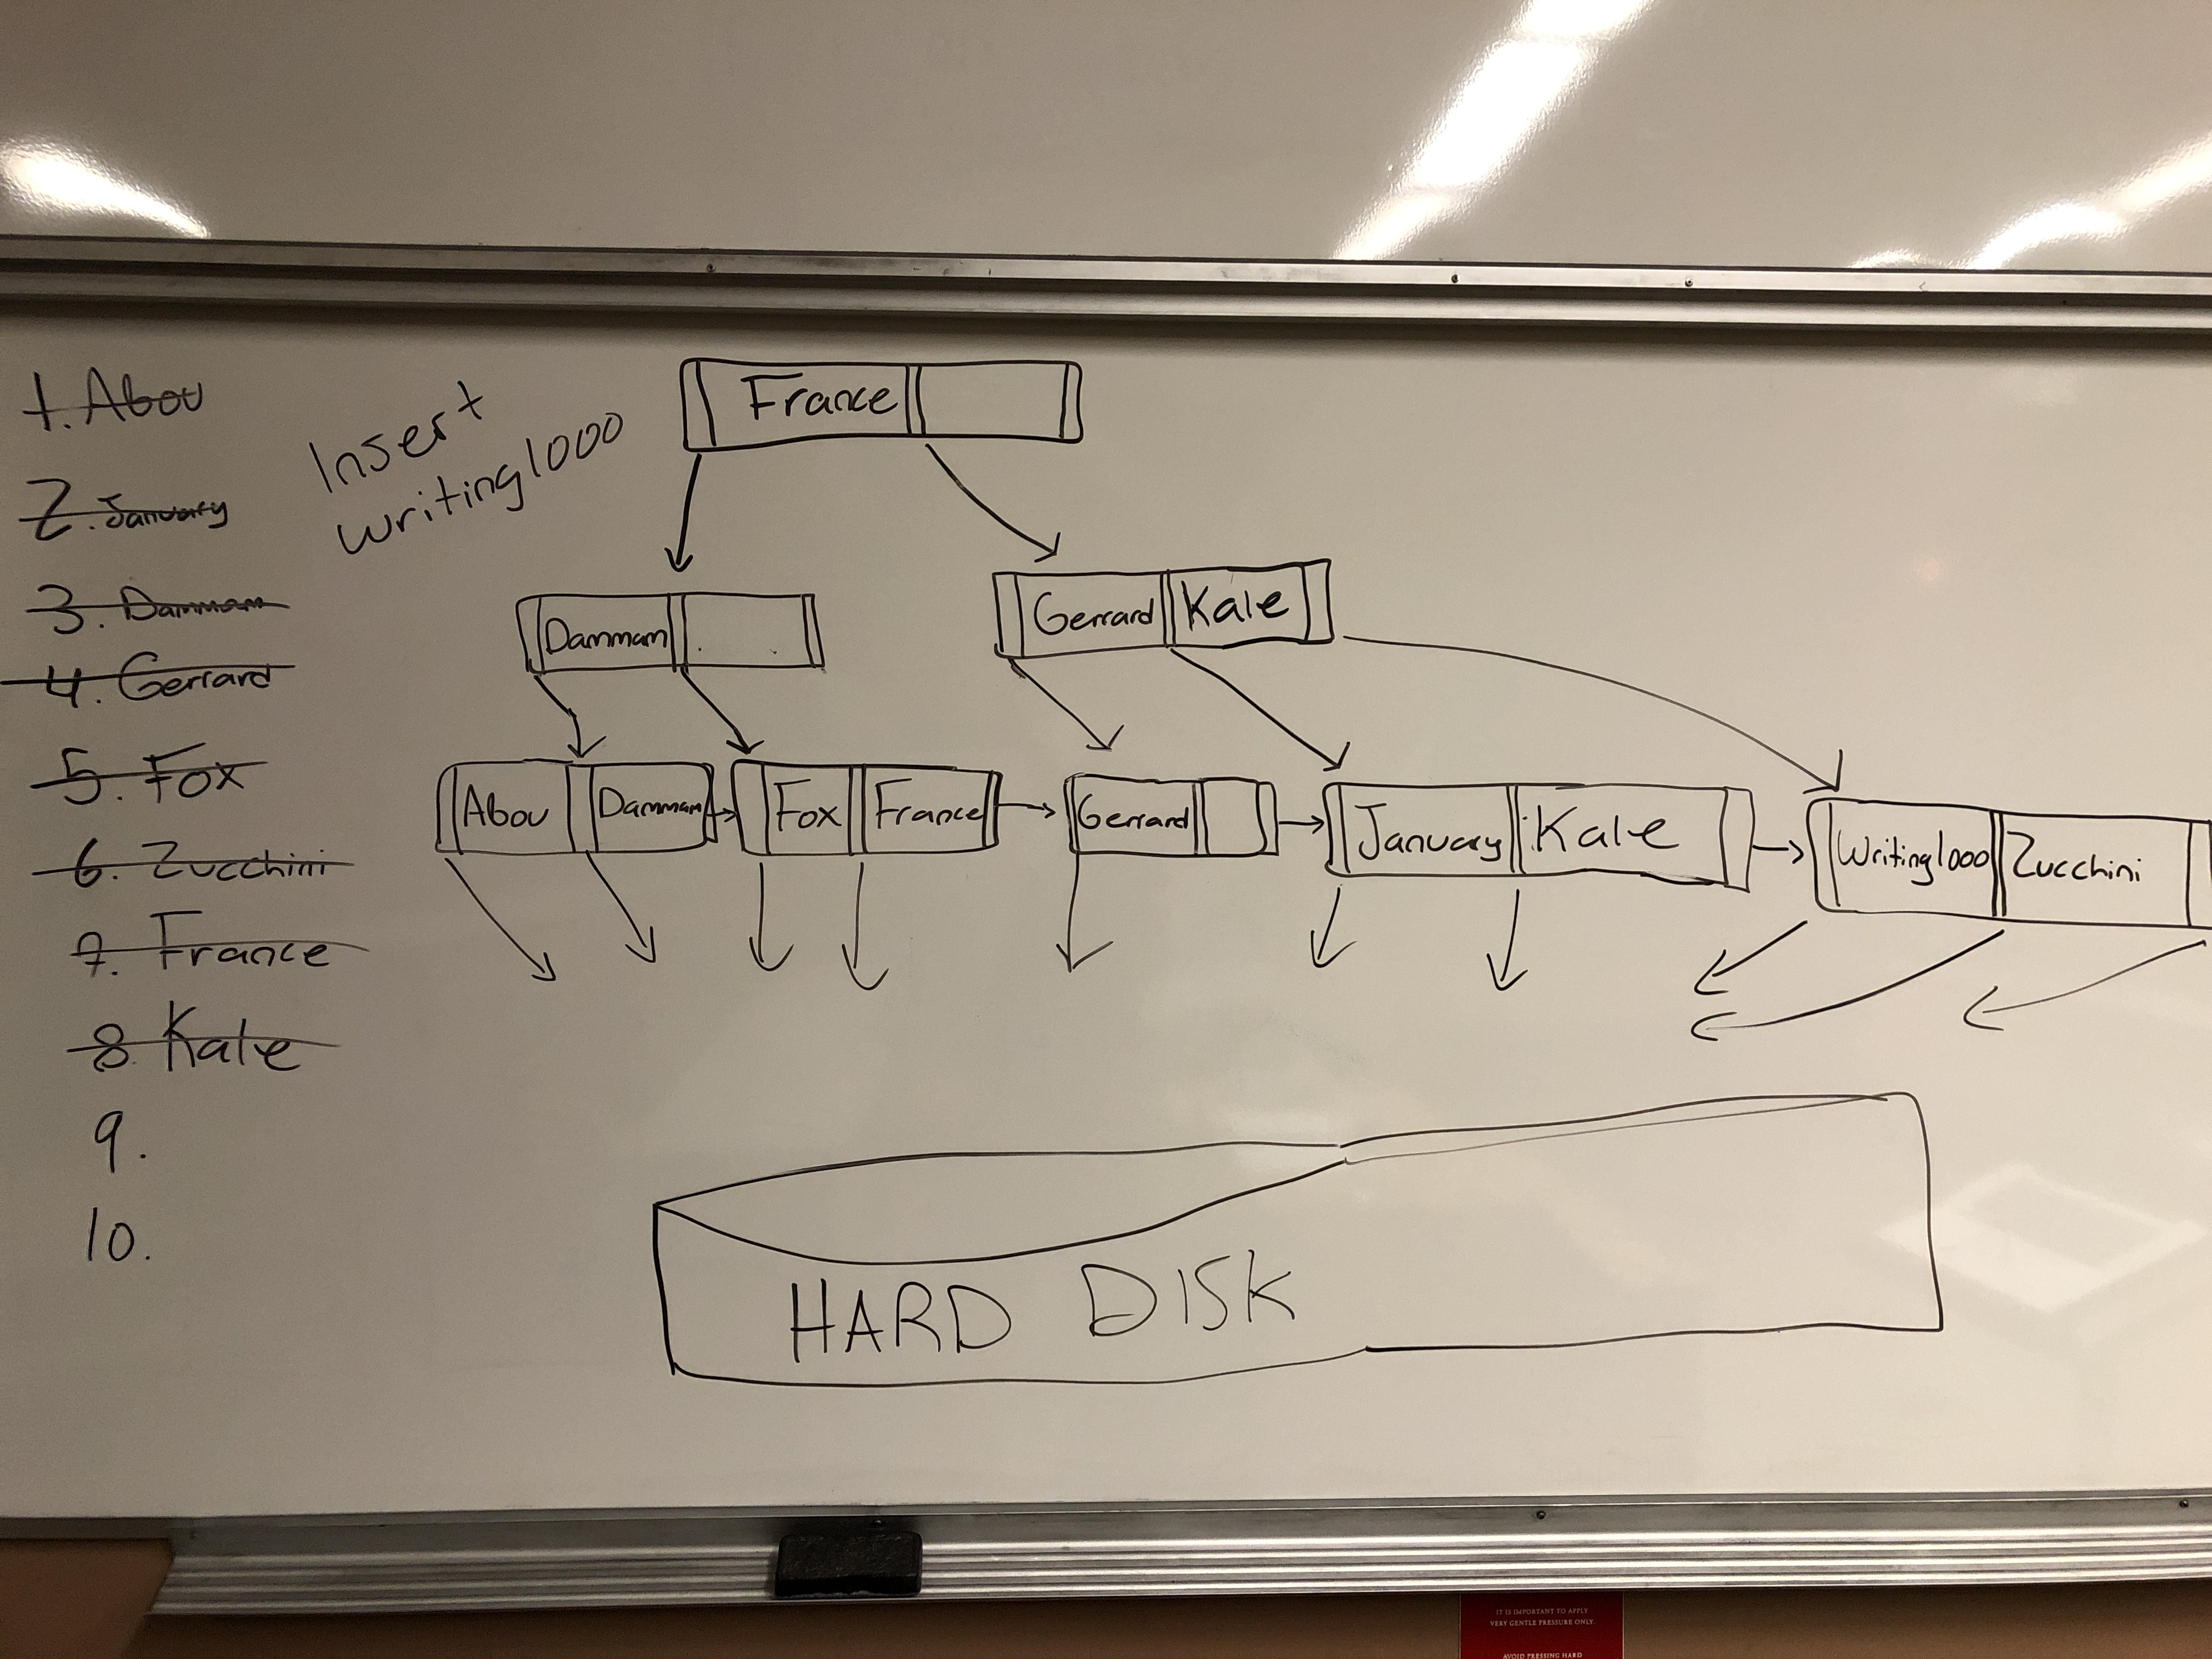 1. Abou
2. January
3. Dammam
4. Gerrard
5. Fox
6. Zucchini
7. France
8. Kale
9.
10.
Insert
writing1000
France
Dammam
Gerrard Kale
Abou Dammam Fox France Gerrard January Kale Writing1000 Zucchini
HARD DISK
IT IS IMPORTANT TO APPLY
VERY GENTLE PRESSURE ONLY.
AVOID PRESSING HARD